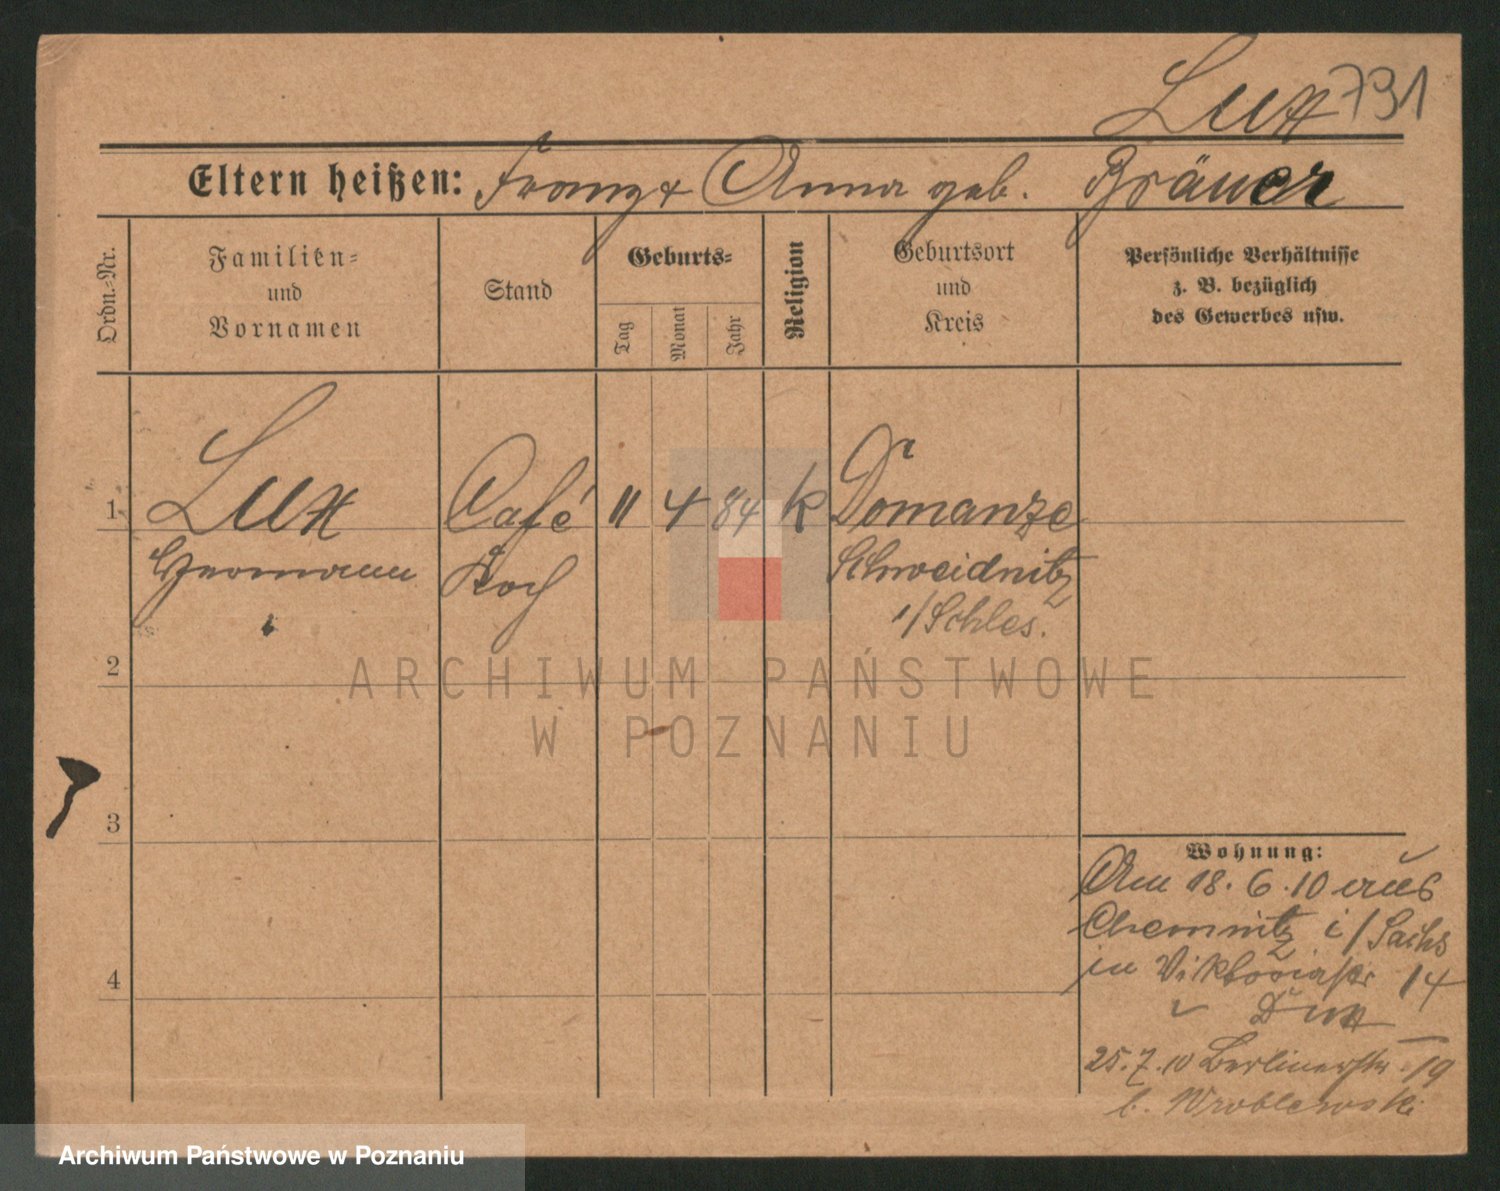 Lux 791
Eltern heißen: Franz & Anna geb. Bräuer
Ordn.-Nr.
Familien-
und
Vornamen
Stand
Geburts-
Tag
Monat
Jahr
Religion
Geburtsort
und
Kreis
Persönliche Verhältnisse
z. B. bezüglich
des Gewerbes usw.
1 Lux Café 11 4 84 k Domanze
Hermann Koch Schweidnitz
i/Schles.
2
3
4
Wohnung:
Am 18.6.10 aus
Chemnitz i/Sachs
in Viktoriastr 14
25.7.10 Berlinerstr. 19
b. Wroblewski
ARCHIWUM PAŃSTWOWE
W POZNANIU
Archiwum Państwowe w Poznaniu